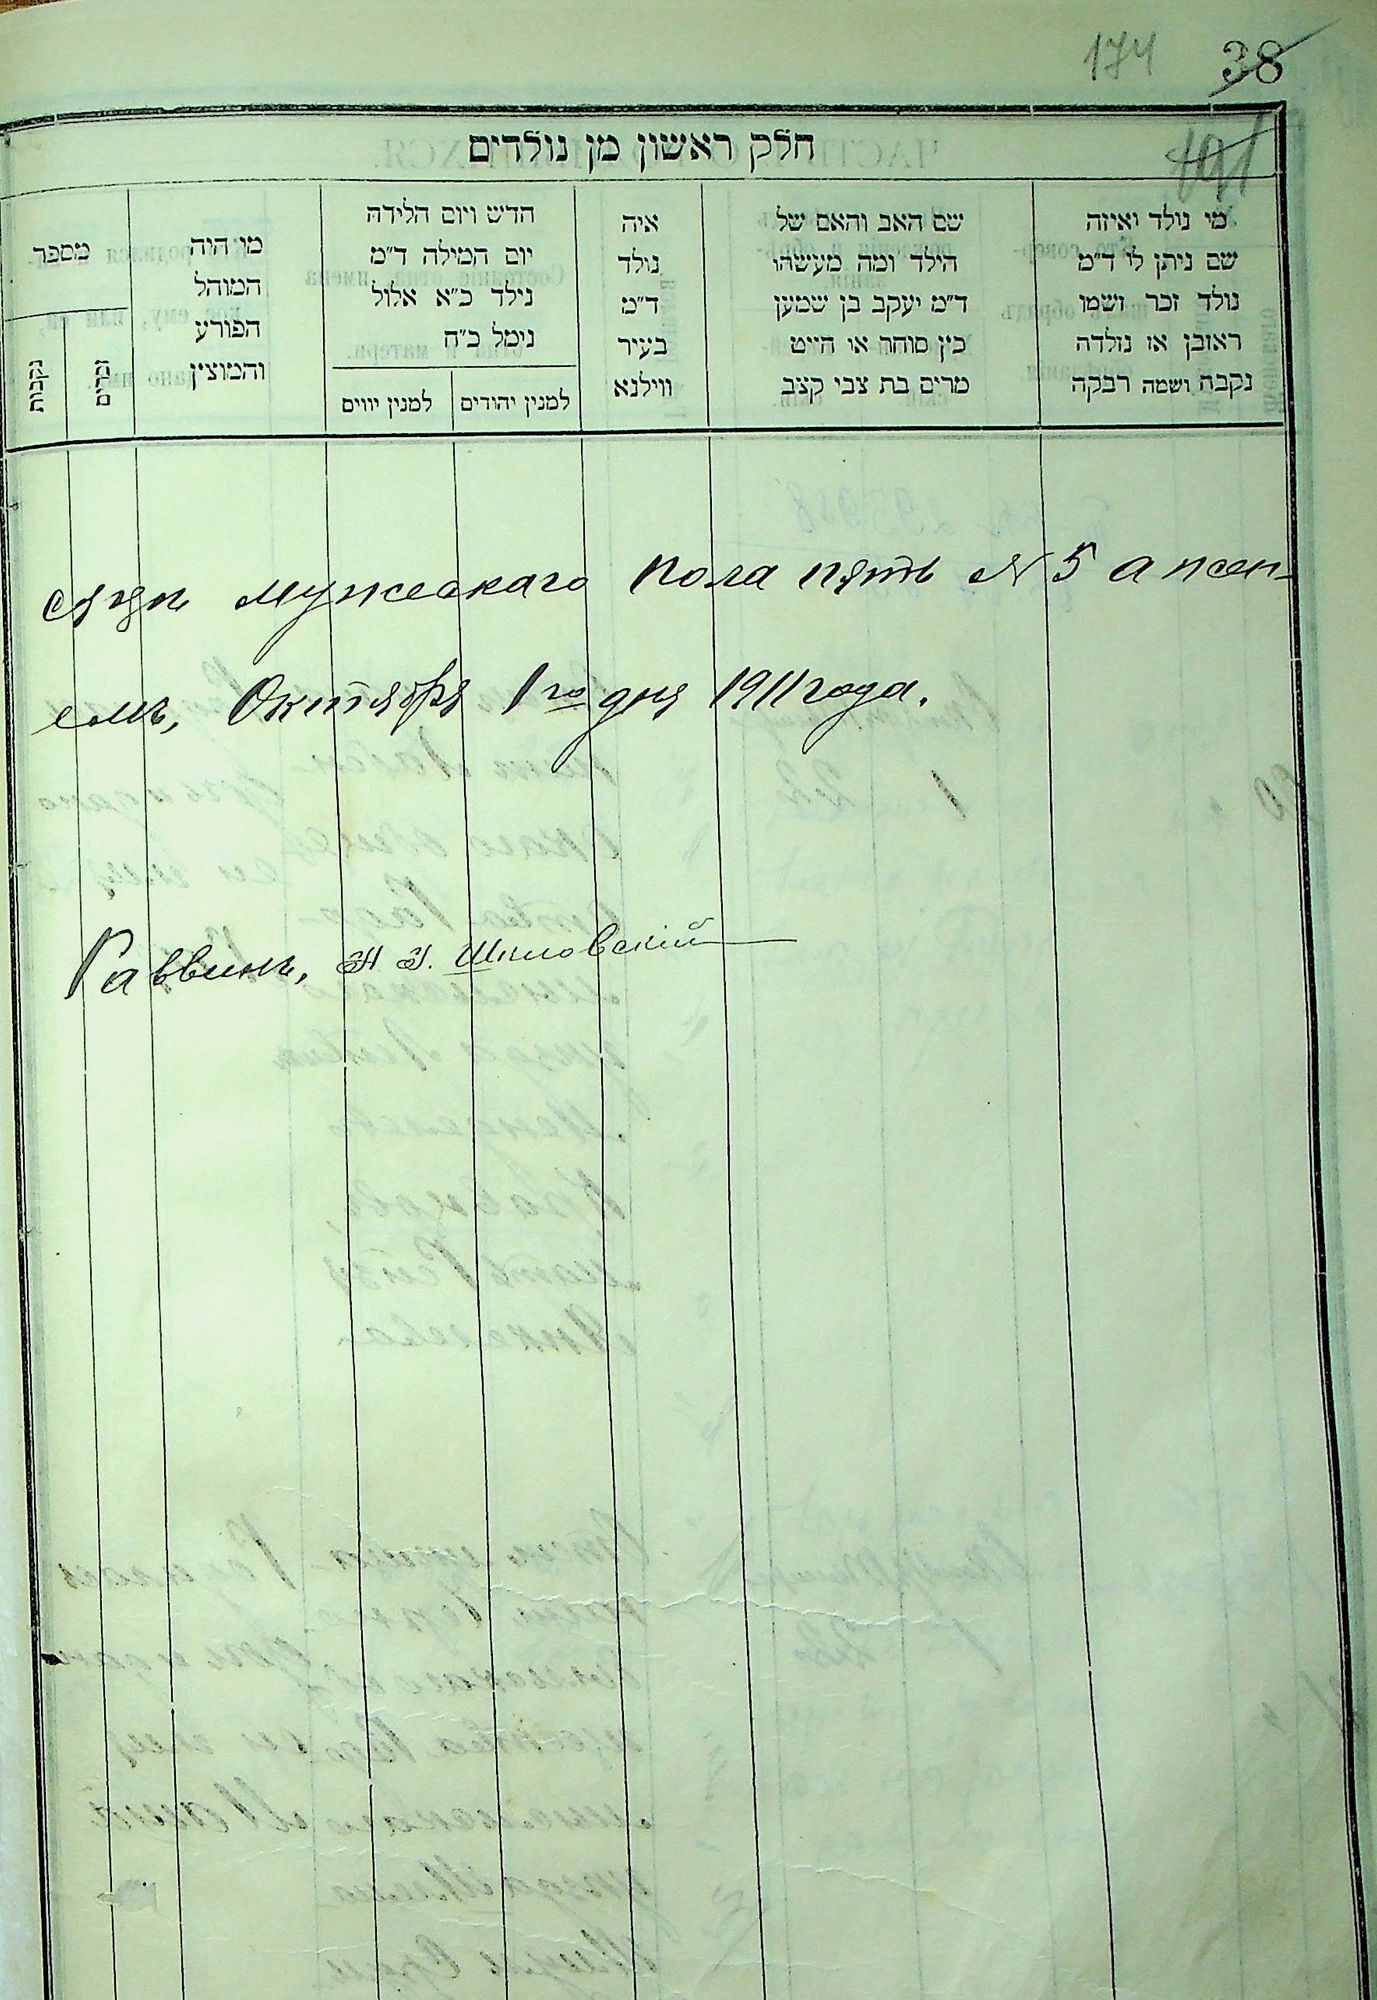 174 38
191
חלק ראשון מן נולדים
מי נולד ואיזה
שם ניתן לו ד״מ
נולד זכר ושמו
ראובן או נולדה
נקבה ושמה רבקה
שם האב והאם של
הילד ומה מעשהו
ד״מ יעקב בן שמען
כין סוחר או חייט
מרים בת צבי קצב
איה
נולד
ד״מ
בעיר
ווילנא
חדש ויום הלידה
יום המילה ד״מ
נילד כ״א אלול
נימל כ״ח
למנין יהודים
למנין יווים
מי היה
המוהל
הפורע
והמוצין
מספר
זכרים
נקבות
сяцъ мужескаго пола пять № 5 а жен-
емъ, Октября 1го дня 1911 года.
Раввинъ, Шкловскій